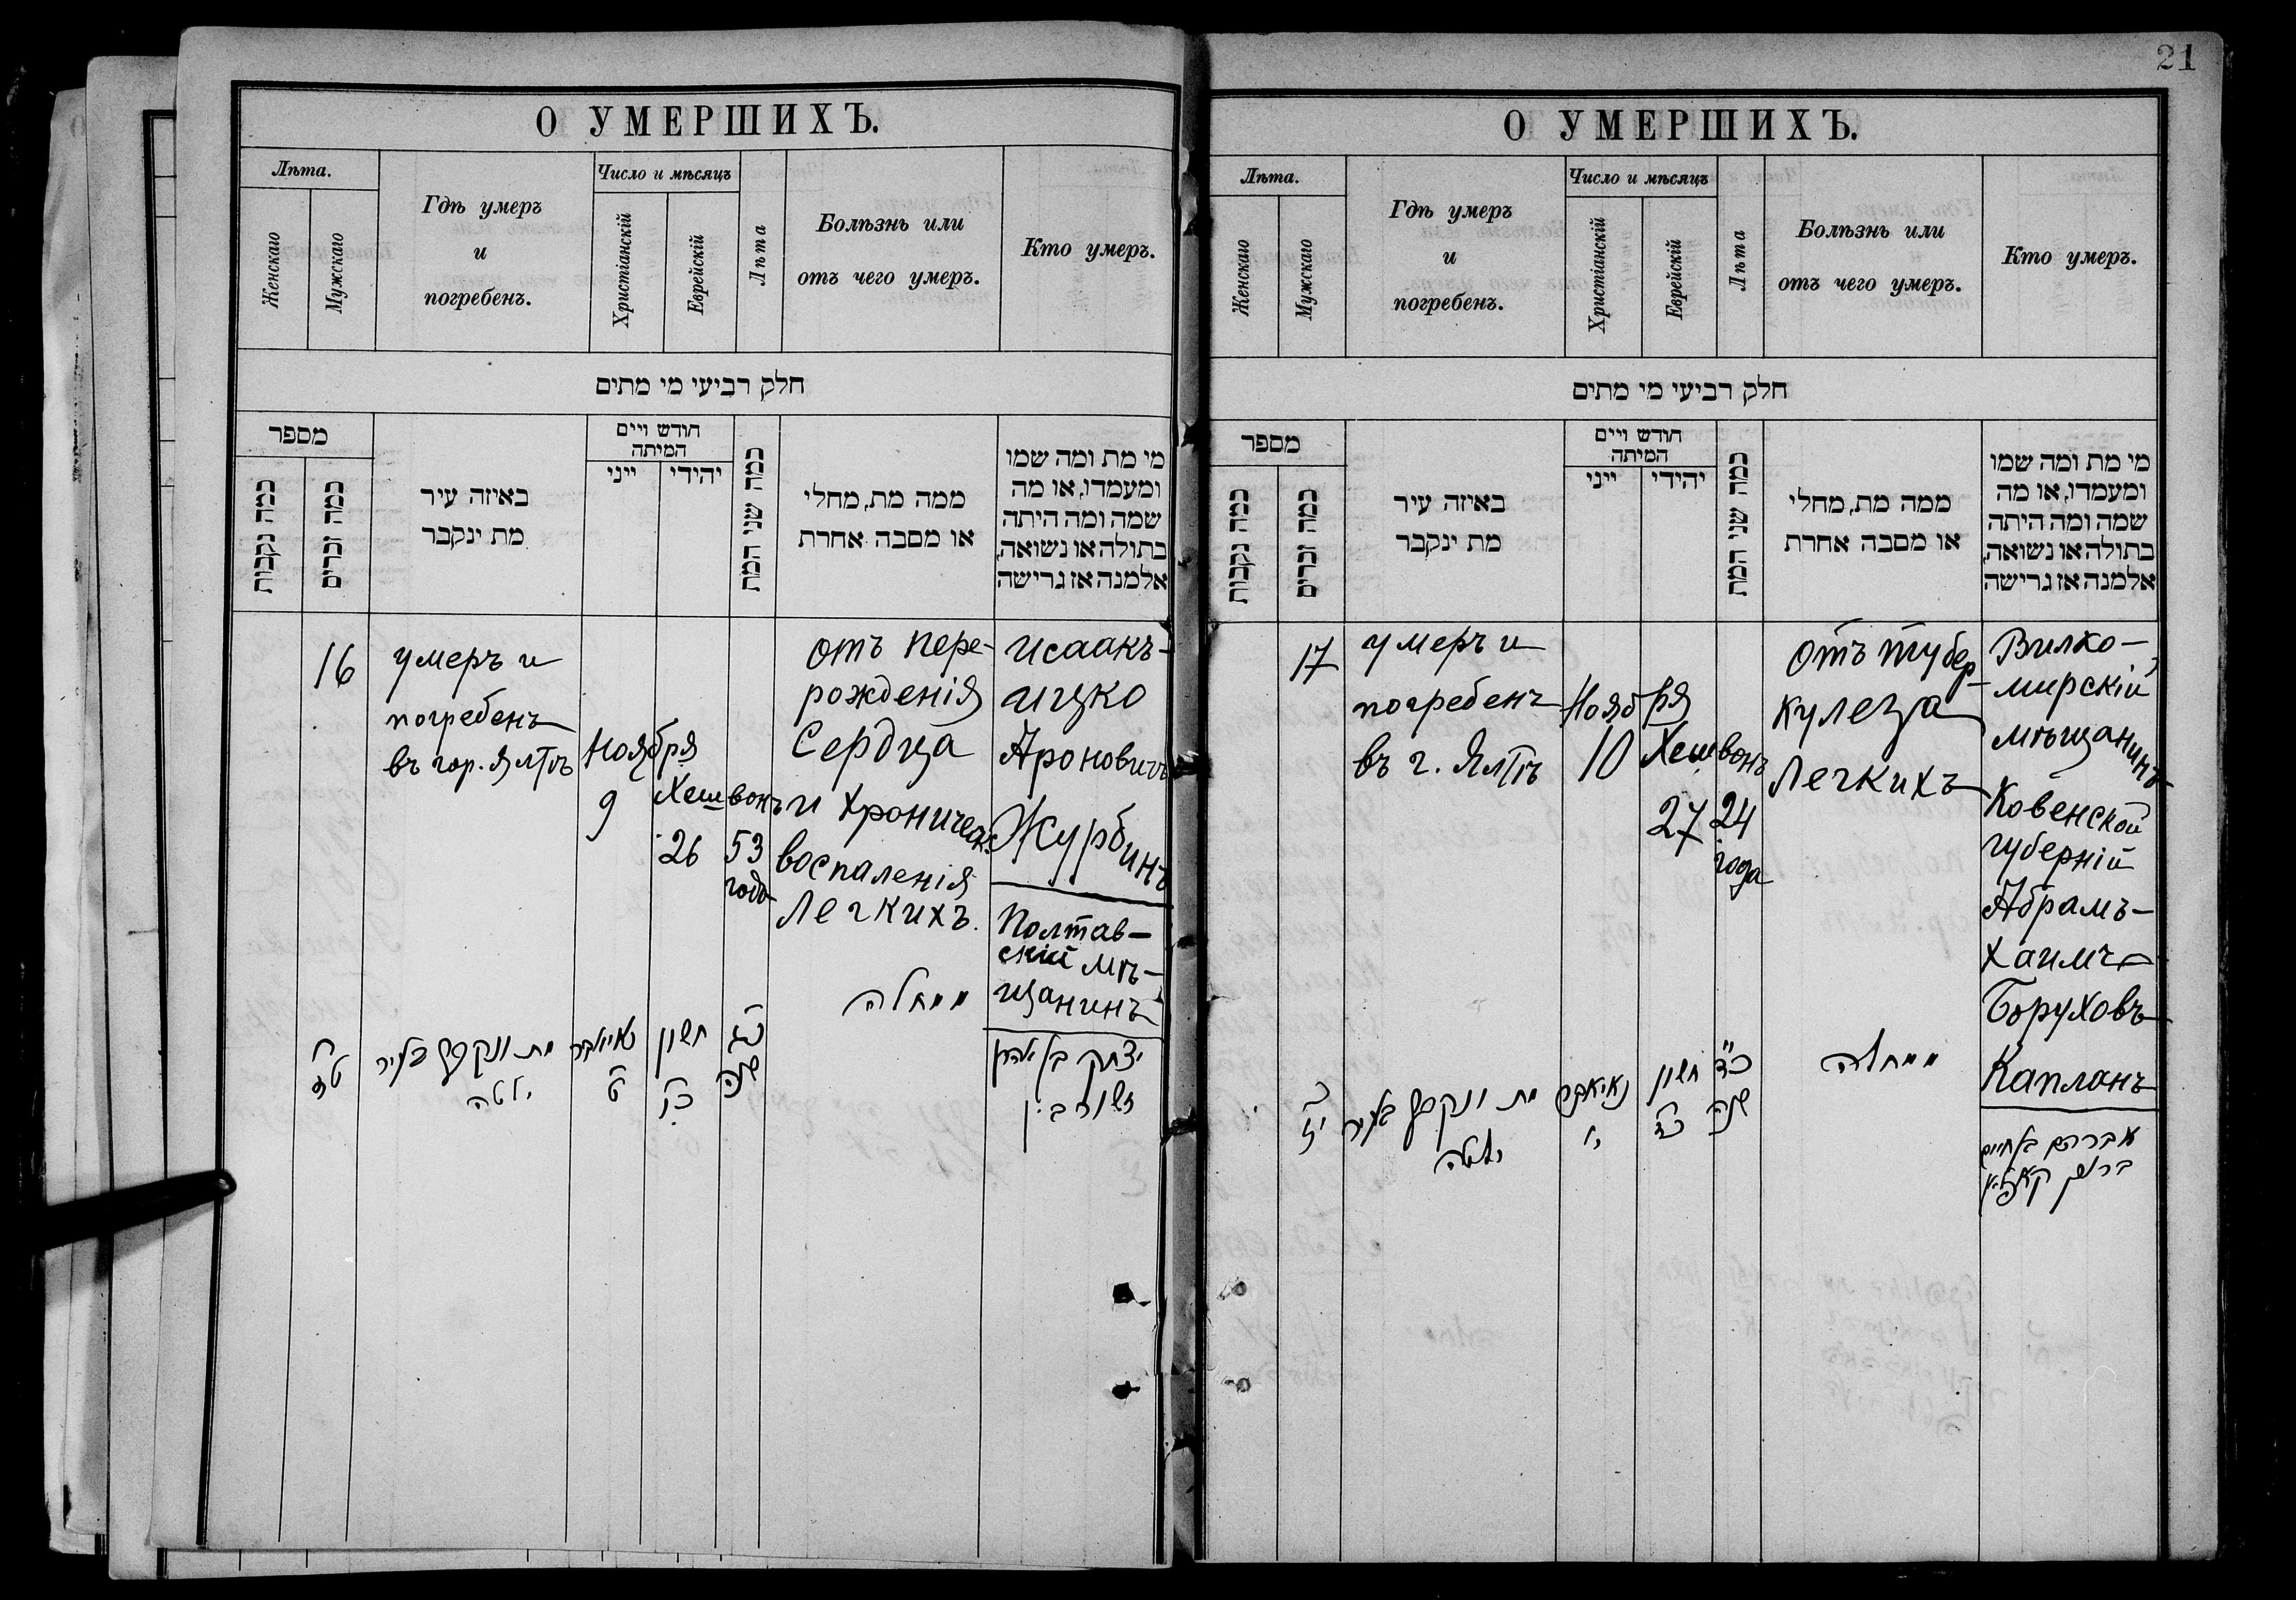 21
О УМЕРШИХЪ.
Лѣта.
Женскаго
Мужскаго
Гдѣ умеръ
и
погребенъ.
Число и мѣсяцъ
Христіанскій
Еврейскій
Лѣта
Болѣзнь или
отъ чего умеръ.
Кто умеръ.
חלק רביעי מי מתים
מספר
כמה נקבות
כמה זכרים
באיזה עיר
מת ינקבר
חודש ויים
המיתה
ייני
יהידי
כמה שני המת
ממה מת, מחלי
או מסבה אחרת
מי מת ומה שמו
ומעמדו, או מה
שמה ומה היתה
בתולה או נשואה,
אלמנה אז גרישה
16
умеръ и
погребенъ
въ гор. Ялтѣ
Ноября
9
Хешвонъ
26
53
года
отъ пере-
рожденія
Сердца
и хроническ.
воспаленія
Легкихъ.
Исаакъ-
Ицко
Ароновичъ
Журбинъ
Полтав-
скій мѣ-
щанинъ
טז
מת ונקבר בעיר
יאלטה
נאיאבר
ט
חשון
כו
נג
שנה
ממחלה
יצחק בן אהרן
זשורבין
О УМЕРШИХЪ.
Лѣта.
Женскаго
Мужскаго
Гдѣ умеръ
и
погребенъ.
Число и мѣсяцъ
Христіанскій
Еврейскій
Лѣта
Болѣзнь или
отъ чего умеръ.
Кто умеръ.
חלק רביעי מי מתים
מספר
כמה נקבות
כמה זכרים
באיזה עיר
מת ינקבר
חודש ויים
המיתה
ייני
יהידי
כמה שני המת
ממה מת, מחלי
או מסבה אחרת
מי מת ומה שמו
ומעמדו, או מה
שמה ומה היתה
בתולה או נשואה,
אלמנה אז גרישה
17
умеръ и
погребенъ
въ г. Ялтѣ
Ноября
10
Хешвонъ
27
24
года
Отъ тубер-
кулеза
Легкихъ
Вилко-
мирскій
мѣщанинъ
Ковенской
губерній
Абрамъ-
Хаимъ
Боруховъ
Капланъ
יז
מת ונקבר בעיר
יאלטה
נאיאבר
י
חשון
כז
כד
שנה
ממחלה
אברהם חיים
ברוך קאפלאן